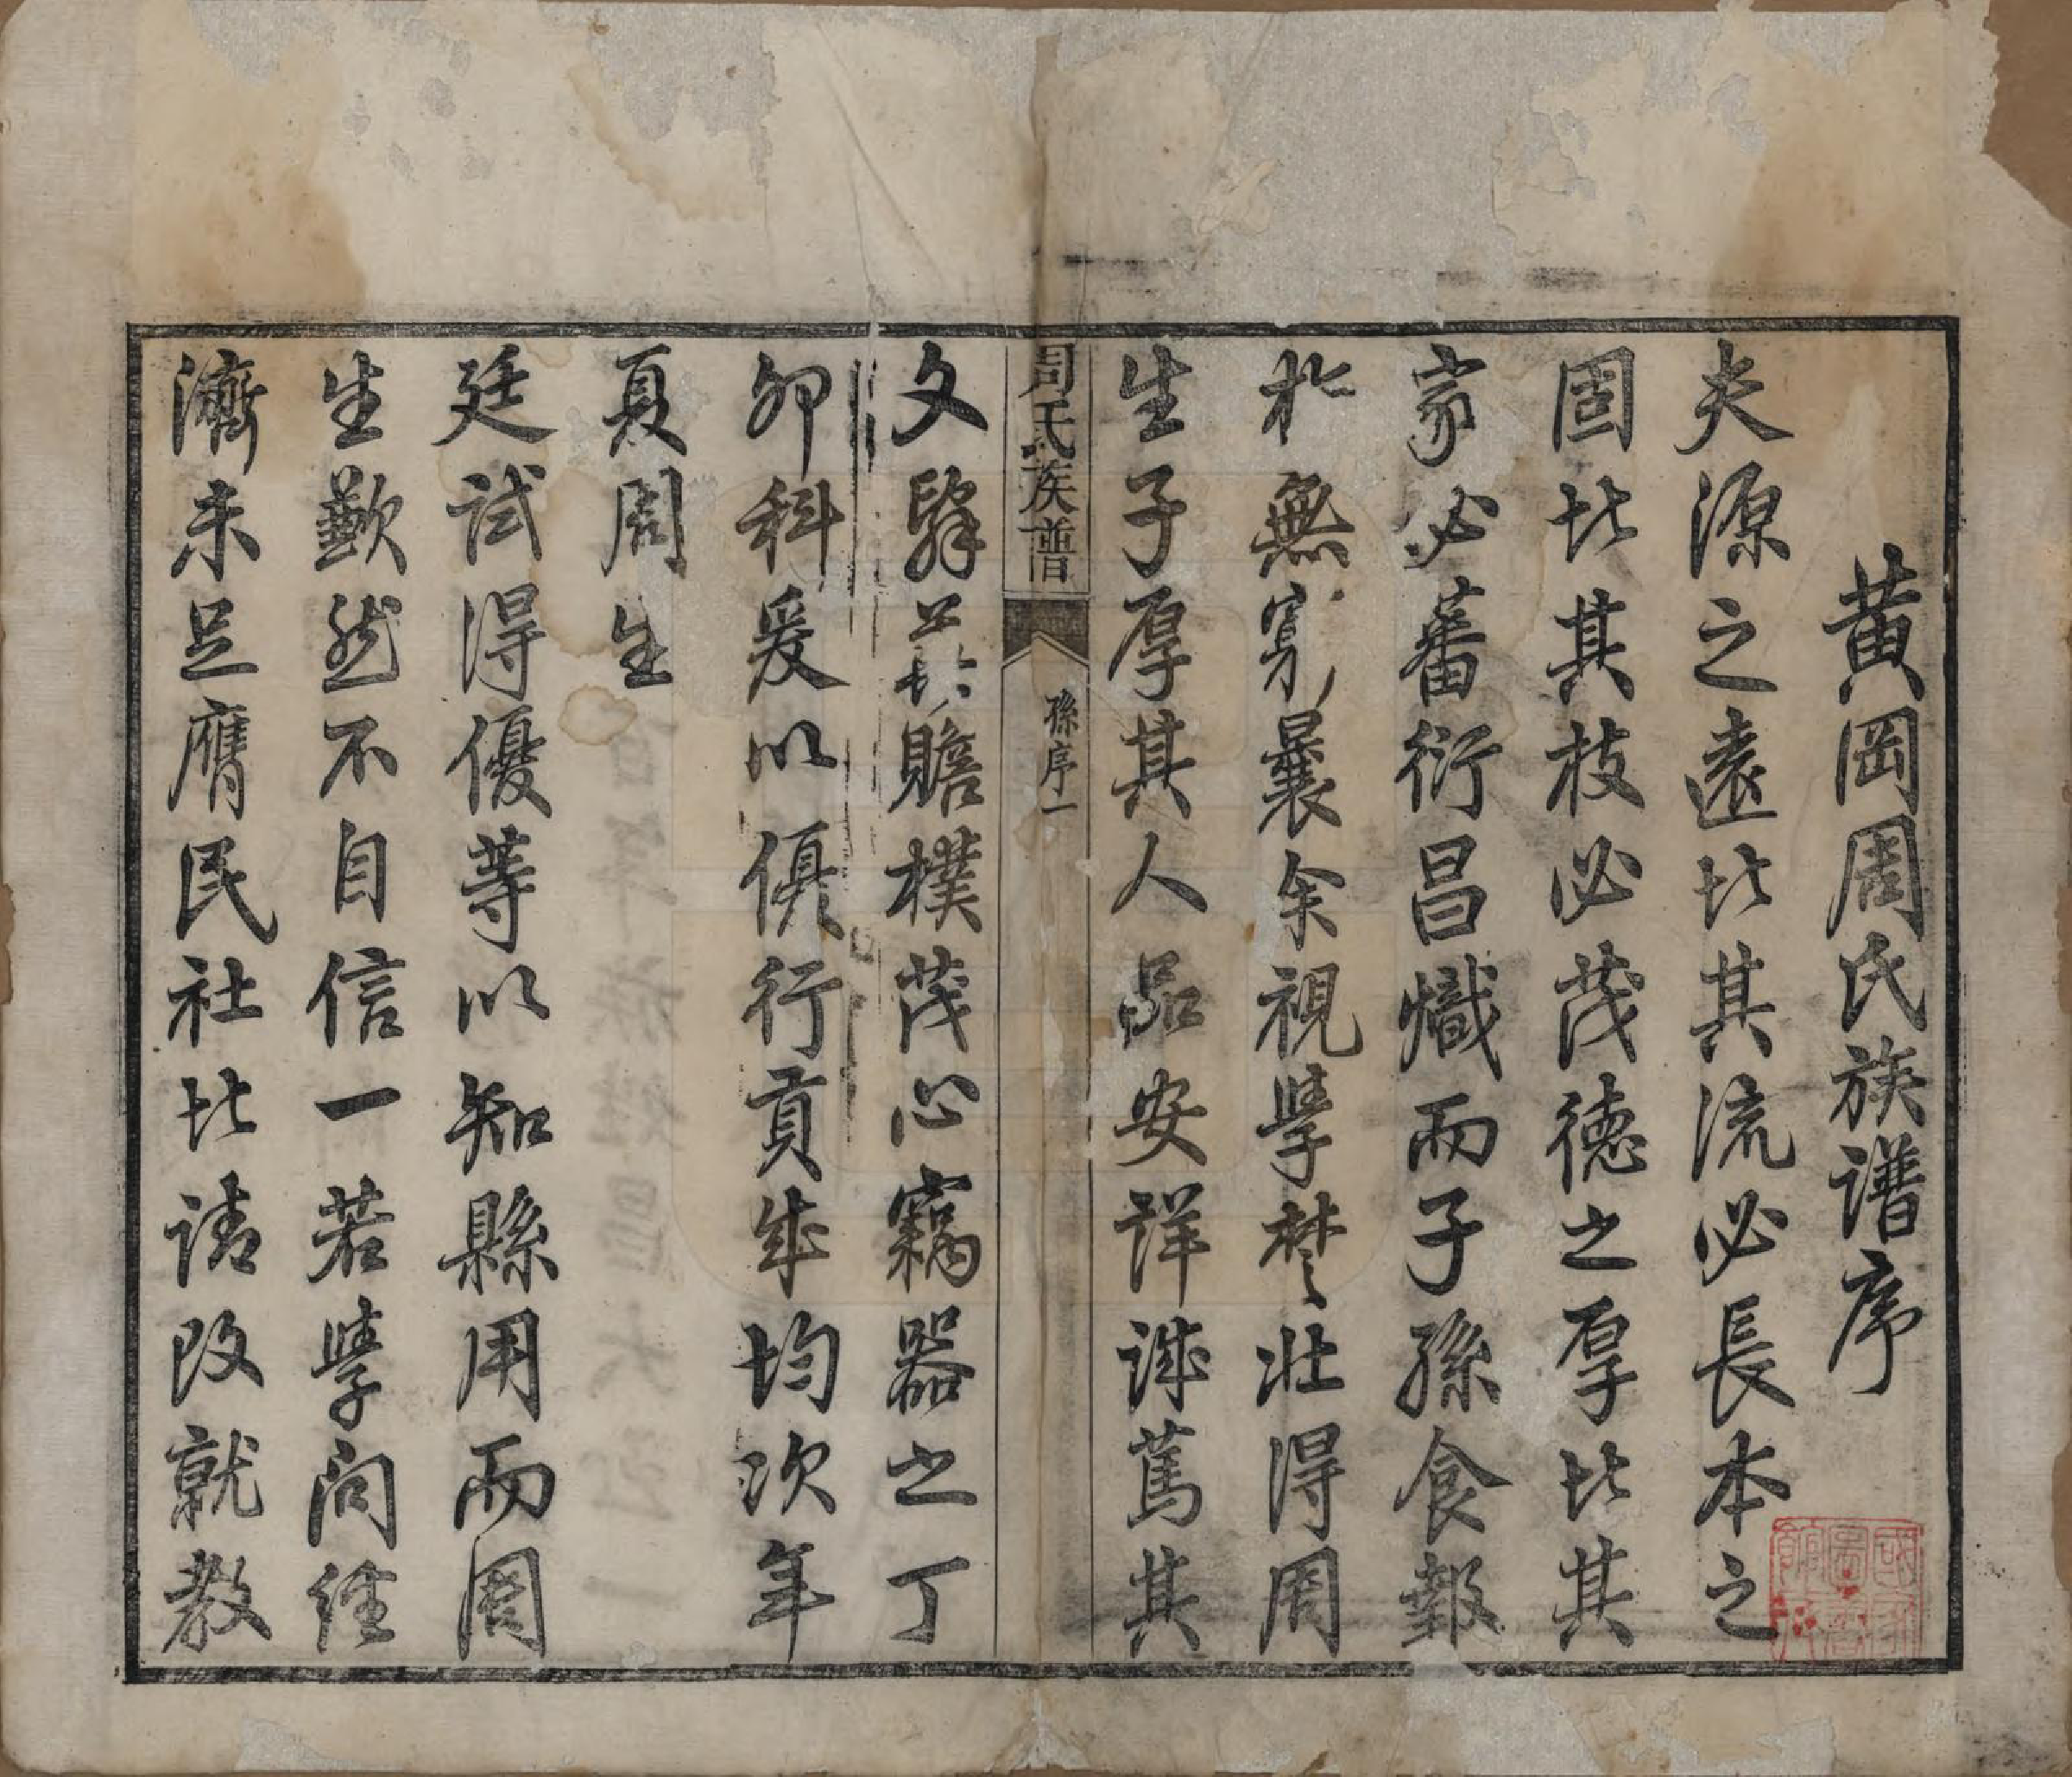 黄岡周氏族谱序
夫源之遠比其流必長本之
固比其枝必茂德之厚比其
家必蕃衍昌熾而子孫食報
於無窮曩余視學楚北得周
生子厚其人品安詳誠篤其
文辭 贍樸茂心竊器之丁
卯科爰以俱行貢成均次年
夏周生
廷試得優等以知縣用而周
生歉然不自信一若學問經
濟未足膺民社比請改就教
周氏族譜
孫序一
國家圖書館